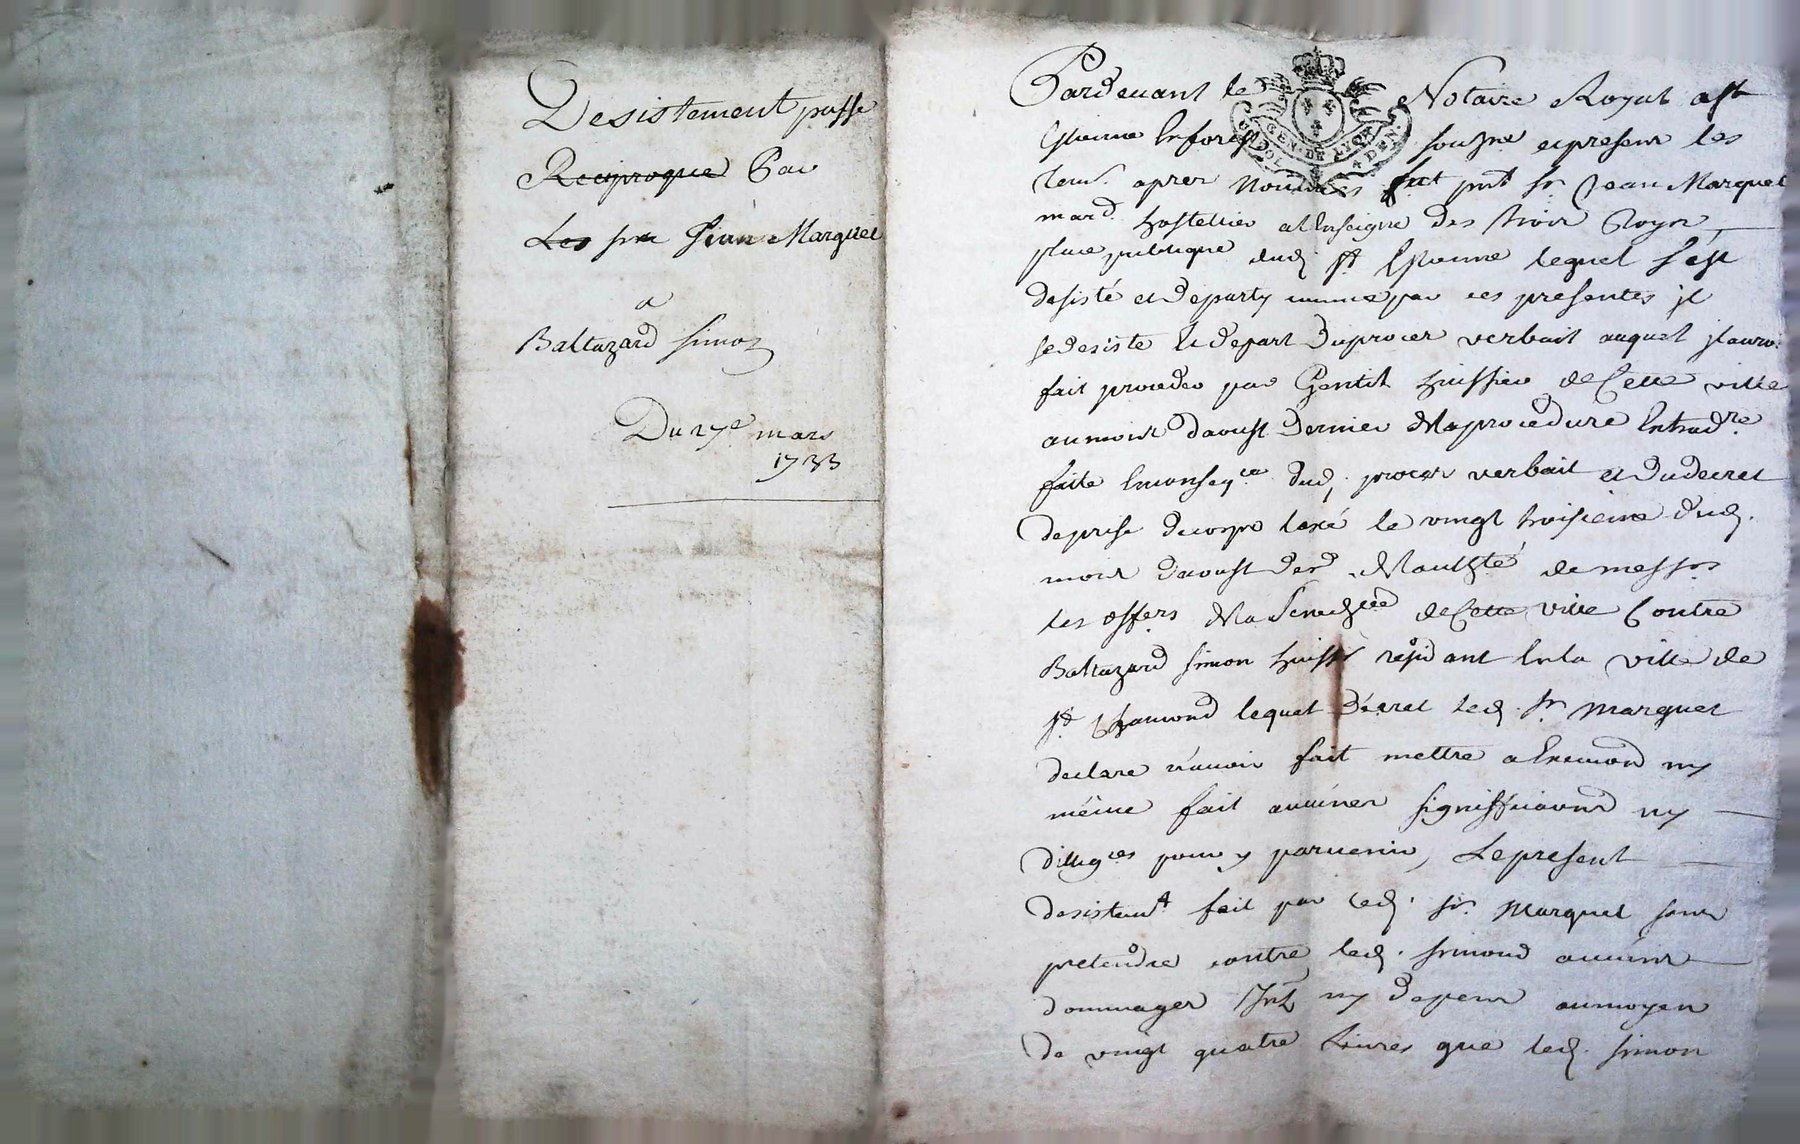 Desistement passe
Reciproque Par
Les sr Jean Marquet
a
Baltazard Simon
Du 27e mars
1733
Pardevant le Notaire Royal a St
Estienne en forest soussigne et presens les
tem. apres nommés fut pnt Sr Jean Marquet
mard. hostellier a l'enseigne des trois Roys
place publique dud. St Estienne lequel s'est
desisté et departy comme par ces presentes il
se desiste et depart du proces verbail auquel il auroi
fait proceder par Gentil huissier de Cette ville
au mois daoust dernier de la procedure Extraordre
faite en conseqce dud. proces verbail et du decret
de prise de corps laxé le vingt troisieme dud.
mois daoust der de l'authté de messrs
les offers de la Senechcée de Cette ville Contre
Baltazard Simon huissr residant En la ville de
St Chamond lequel Décret led. Sr Marquet
declare n'avoir fait mettre a Execuon ny
même fait aucunes significaons ny
dilligces pour y parvenir, Le present
desistemt fait par led. Sr Marquet sans
pretendre contre led. Simond aucuns
dommages Intz ny depens au moyen
de vingt quatre Livres que led. Simon
GEN. DE LYON